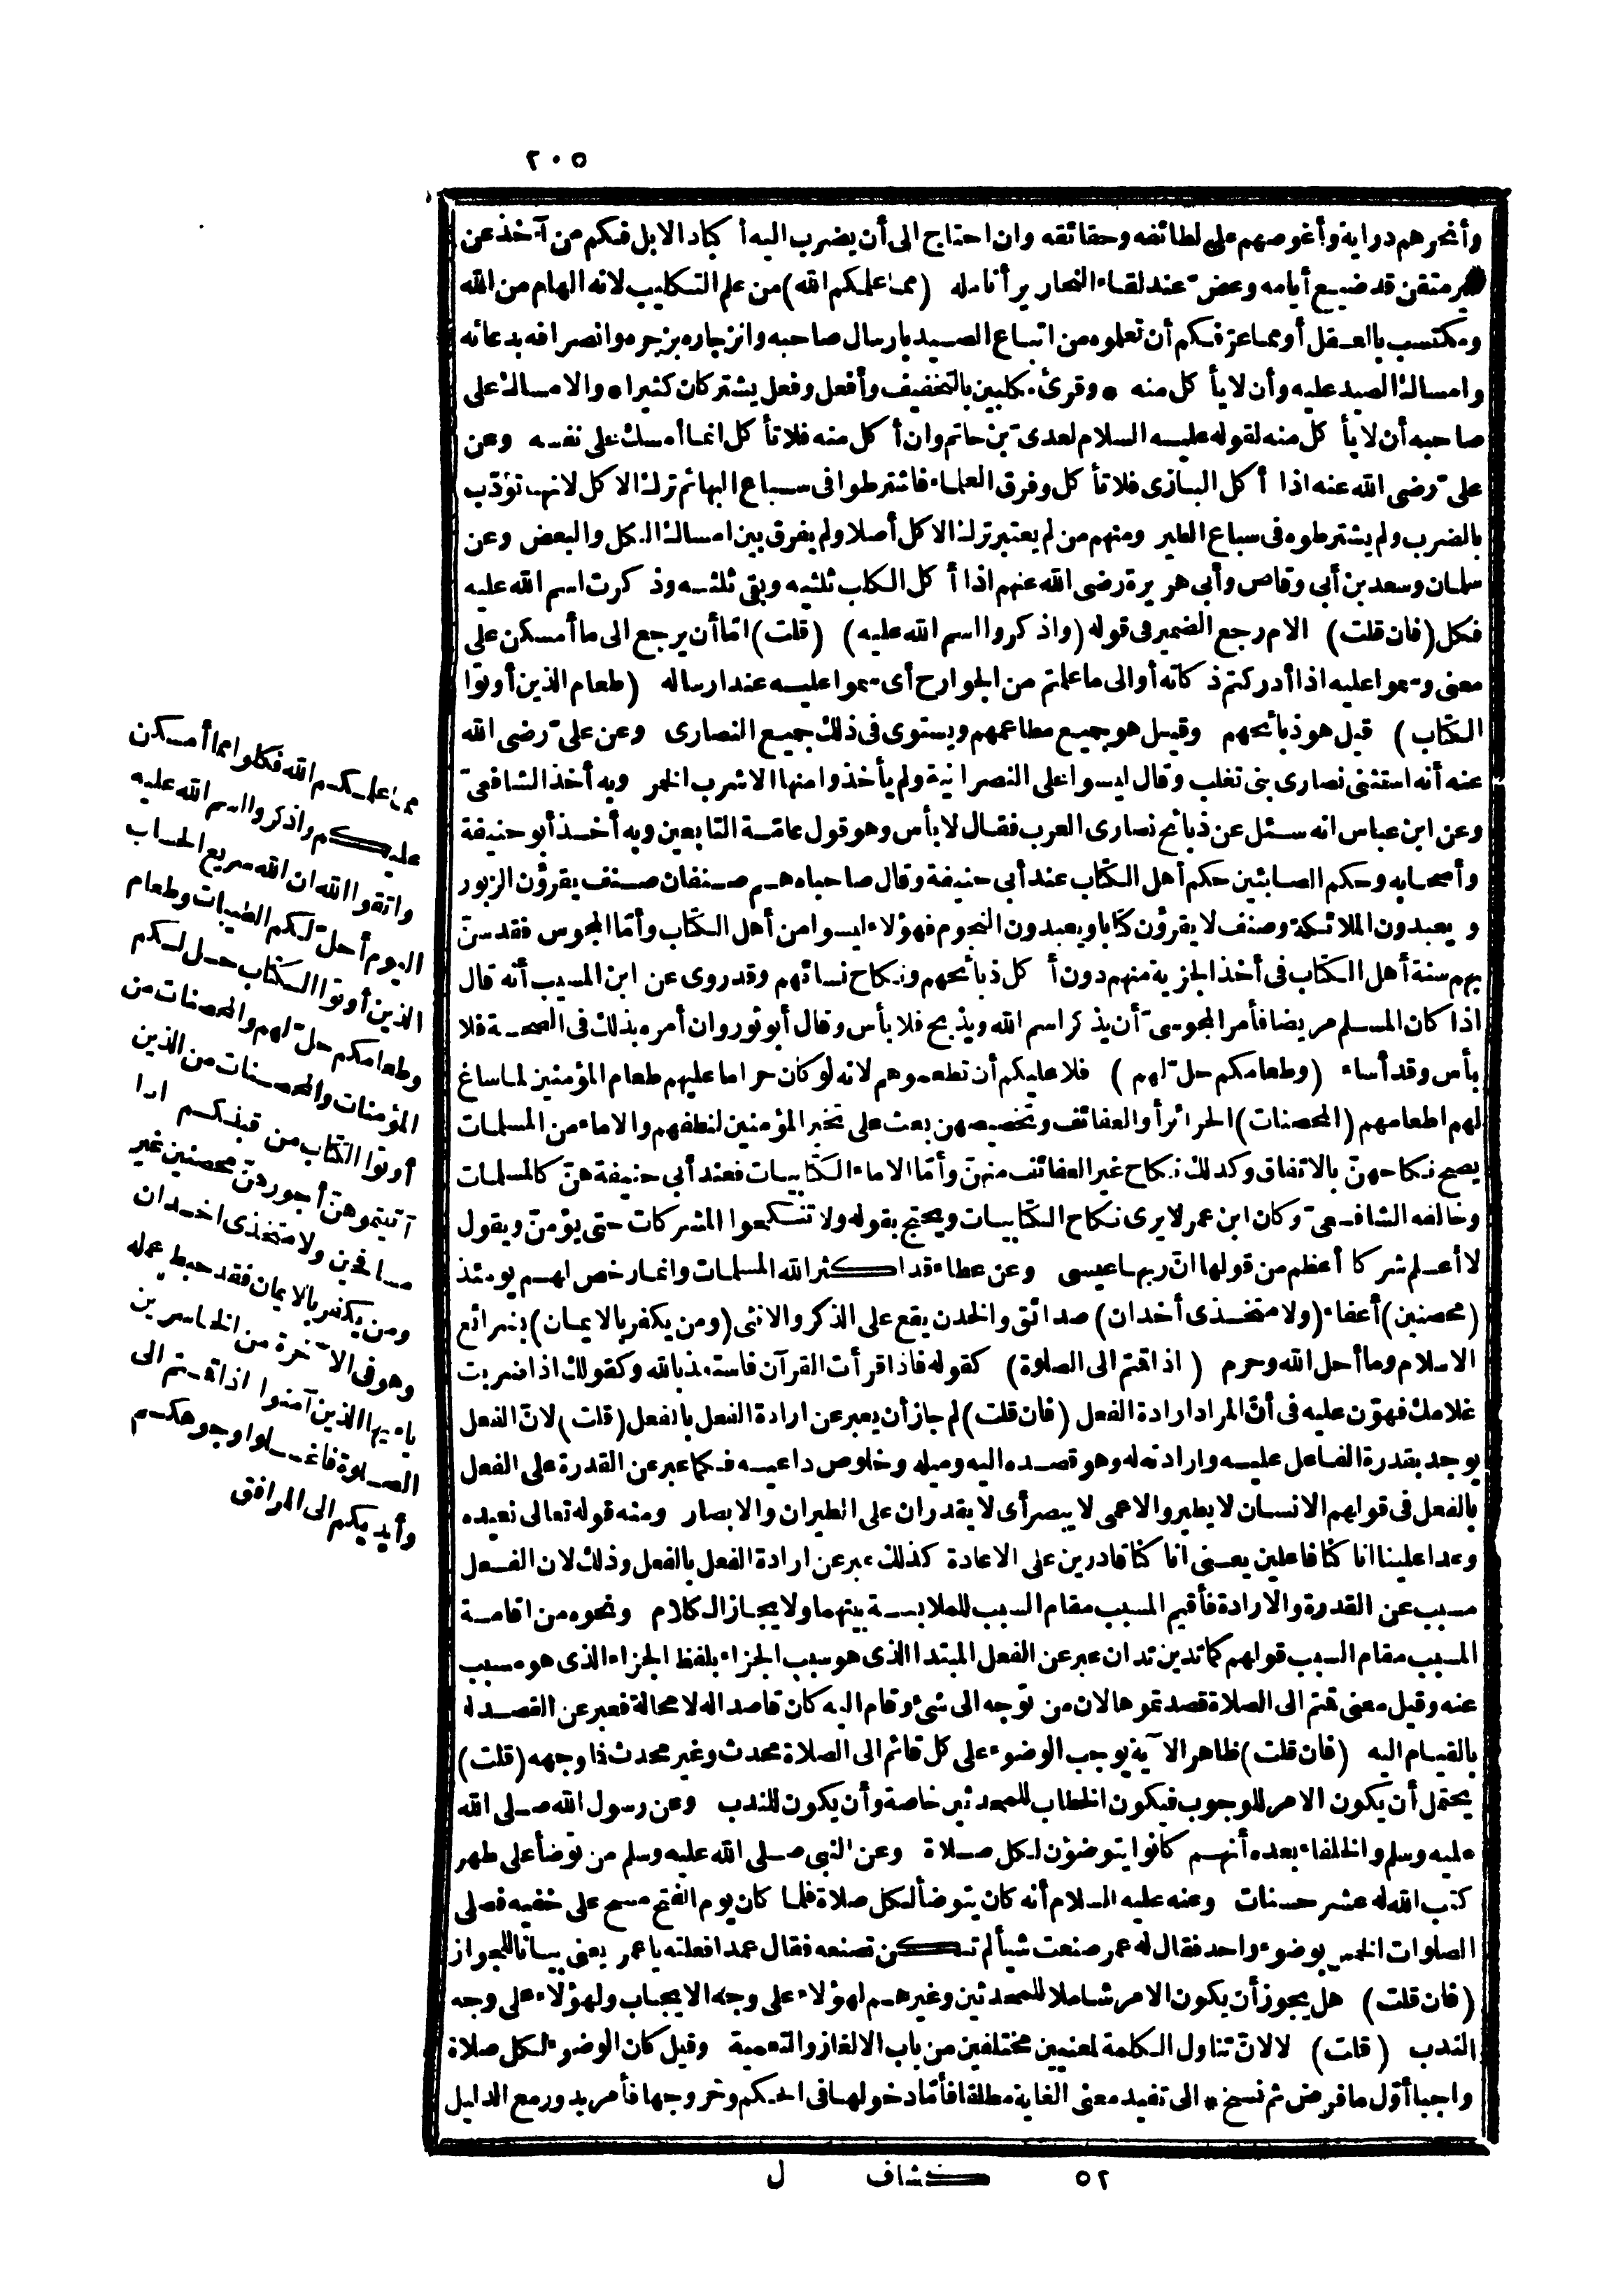 ٢٠٥
وأنحرهم دراية وأغوصهم على لطائفه وحقائقه وان احتاج الى أن يضرب اليه أكباد الابل فكم من آخذ عن
غير متقن قد ضيع أيامه وعض عند لقاء النحارير أنامله (مما علمكم الله) من علم التكليب لانه الهام من الله
ومكتسب بالعقل أو مما عرفكم أن تعلموه من اتباع الصيد بارسال صاحبه وانزجاره بزجره وانصرافه بدعائه
وامساك الصيد عليه وأن لا يأكل منه * وقرئ مكلبين بالتخفيف وأفعل وفعل يشتركان كثيرا * والامساك على
صاحبه أن لا يأكل منه لقوله عليه السلام لعدىّ بن حاتم وان أكل منه فلا تأكل انما أمسك على نفسه وعن
علىّ رضى الله عنه اذا أكل البازى فلا تأكل وفرق العلماء فاشترطوا فى سباع البهائم ترك الاكل لانها تؤدّب
بالضرب ولم يشترطوه فى سباع الطير ومنهم من لم يعتبر ترك الاكل أصلا ولم يفرق بين امساك الكل والبعض وعن
سلمان وسعد بن أبى وقاص وأبى هريرة رضى الله عنهم اذا أكل الكلب ثلثيه وبقى ثلثه وذكرت اسم الله عليه
فكل (فان قلت) الام رجع الضمير فى قوله (واذكروا اسم الله عليه) (قلت) امّا أن يرجع الى ما أمسكن على
معنى وسموا عليه اذا أدركتم ذكاته أو الى ما علمتم من الجوارح أى سموا عليه عند ارساله (طعام الذين أوتوا
الكتاب) قيل هو ذبائحهم وقيل هو جميع مطاعمهم ويستوى فى ذلك جميع النصارى وعن علىّ رضى الله
عنه أنه استثنى نصارى بنى تغلب وقال ليسوا على النصرانية ولم يأخذوا منها الا شرب الخمر وبه أخذ الشافعىّ
وعن ابن عباس انه سئل عن ذبائح نصارى العرب فقال لا بأس وهو قول عامّة التابعين وبه أخذ أبو حنيفة
وأصحابه وحكم الصابئين حكم أهل الكتاب عند أبى حنيفة وقال صاحباه هم صنفان صنف يقرؤن الزبور
ويعبدون الملائكة وصنف لا يقرؤن كتابا ويعبدون النجوم فهؤلاء ليسوا من أهل الكتاب وأمّا المجوس فقد سنّ
بهم سنة أهل الكتاب فى أخذ الجزية منهم دون أكل ذبائحهم ونكاح نسائهم وقد روى عن ابن المسيب أنه قال
اذا كان المسلم مريضا فأمر المجوسىّ أن يذكر اسم الله ويذبح فلا بأس وقال أبو ثور وان أمره بذلك فى الصحة فلا
بأس وقد أساء (وطعامكم حلّ لهم) فلا عليكم أن تطعموهم لانه لو كان حراما عليهم طعام المؤمنين لما ساغ
لهم اطعامهم (المحصنات) الحرائر أو العفائف وتخصيصهن بعث على تخير المؤمنين لنطفهم والاماء من المسلمات
يصح نكاحهنّ بالاتفاق وكذلك نكاح غير العفائف منهنّ وأمّا الاماء الكتابيات فعند أبى حنيفة هنّ كالمسلمات
وخالفه الشافعىّ وكان ابن عمر لا يرى نكاح الكتابيات ويحتج بقوله ولا تنكحوا المشركات حتى يؤمنّ ويقول
لا أعلم شركا أعظم من قولها انّ ربها عيسى وعن عطاء قد أكثر الله المسلمات وانما رخص لهم يومئذ
(محصنين) أعفاء (ولا متخذى أخدان) صدائق والخدن يقع على الذكر والانثى (ومن يكفر بالايمان) بشرائع
الاسلام وما أحل الله وحرم (اذا قمتم الى الصلوة) كقوله فاذا قرأت القرآن فاستعذ بالله وكقولك اذا ضربت
غلامك فهوّن عليه فى أنّ المراد ارادة الفعل (فان قلت) لم جاز أن يعبر عن ارادة الفعل بالفعل (قلت) لانّ الفعل
يوجد بقدرة الفاعل عليه وارادته له وهو قصده اليه وميله وخلوص داعيه فكما عبر عن القدرة على الفعل
بالفعل فى قولهم الانسان لا يطير والاعمى لا يبصر أى لا يقدران على الطيران والابصار ومنه قوله تعالى نعيده
وعدا علينا انا كنا فاعلين يعنى انا كنا قادرين على الاعادة كذلك عبر عن ارادة الفعل بالفعل وذلك لان الفعل
مسبب عن القدرة والارادة فأقيم المسبب مقام السبب للملابسة بينهما ولا يجاز الكلام ونحوه من اقامة
المسبب مقام السبب قولهم كما تدين تدان عبر عن الفعل المبتدا الذى هو سبب الجزاء بلفظ الجزاء الذى هو مسبب
عنه وقيل معنى قمتم الى الصلاة قصدتموها لان من توجه الى شئ وقام اليه كان قاصدا له لا محالة فعبر عن القصد له
بالقيام اليه (فان قلت) ظاهر الآية يوجب الوضوء على كل قائم الى الصلاة محدث وغير محدث فا وجهه (قلت)
يحتمل أن يكون الامر للوجوب فيكون الخطاب للمحدثين خاصة وأن يكون للندب وعن رسول الله صلى الله
عليه وسلم والخلفاء بعده أنهم كانوا يتوضؤن لكل صلاة وعن النبى صلى الله عليه وسلم من توضأ على طهر
كتب الله له عشر حسنات وعنه عليه السلام أنه كان يتوضأ لكل صلاة فلما كان يوم الفتح مسح على خفيه فصلى
الصلوات الخمس بوضوء واحد فقال له عمر صنعت شيأ لم تكن تصنعه فقال عمدا فعلته يا عمر يعنى بيانا للجواز
(فان قلت) هل يجوز أن يكون الامر شاملا للمحدثين وغيرهم لهؤلاء على وجه الايجاب ولهؤلاء على وجه
الندب (قلت) لا لانّ تناول الكلمة لمعنيين مختلفين من باب الالغاز والتعمية وقيل كان الوضوء لكل صلاة
واجبا أوّل ما فرض ثم نسخ * الى تفيد معنى الغاية مطلقا فأمّا دخولها فى الحكم وخروجها فأمر يدور مع الدليل
مما علمكم الله فكلوا مما أمسكن
عليكم واذكروا اسم الله عليه
واتقوا الله ان الله سريع الحساب
اليوم أحلّ لكم الطيبات وطعام
الذين أوتوا الكتاب حل لكم
وطعامكم حلّ لهم والمحصنات من
المؤمنات والمحصنات من الذين
أوتوا الكتاب من قبلكم اذا
آتيتموهنّ أجورهنّ محصنين غير
مسافحين ولا متخذى اخدان
ومن يكفر بالايمان فقد حبط عمله
وهو فى الآخرة من الخاسرين
يا ءيها الذين آمنوا اذا قمتم الى
الصلوة فاغسلوا وجوهكم
وأيديكم الى المرافق
٥٢ كشاف ل